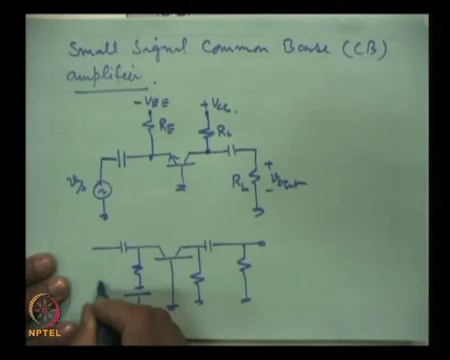 Small Signal Common Base (CB)
amplifier.
-VEE
+VCC
RE
RL
vs
RL
+
vout
-
NPTEL